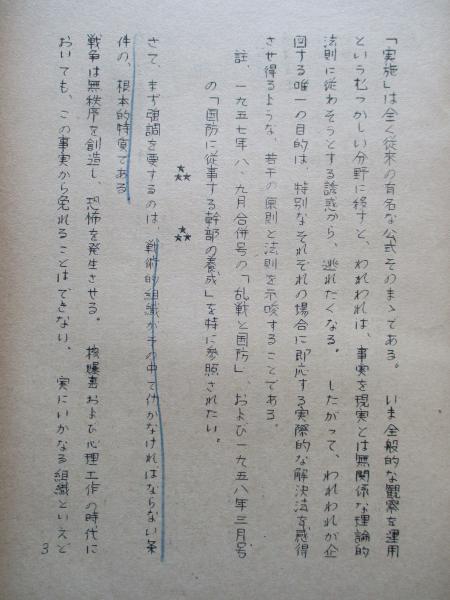 「実施」は全く従来の有名な公式そのまゝである。　いま全般的な観察を運用
というむつかしい分野に移すと、われわれは、事実を現実とは無関係な理論的
法則に従わそうとする誘惑から、逃れたくなる。　したがって、われわれが企
図する唯一の目的は、特別なそれぞれの場合に即応する実際的な解決法を感得
させ得るような、若干の原則と法則を示唆することである。
註、一九五七年八、九月合併号の「乱戦と国防」、および一九五八年三月号
の「国防に従事する幹部の養成」を特に参照されたい。
★★★　★★★
さて、まず強調を要するのは、戦術的組織がその中で仂かなければならない条
件の、根本的特質である
戦争は無秩序を創造し、恐怖を発生させる。　核爆書および心理工作の時代に
おいても、この事実から免れることはできない。　実にいかなる組織といえど
3